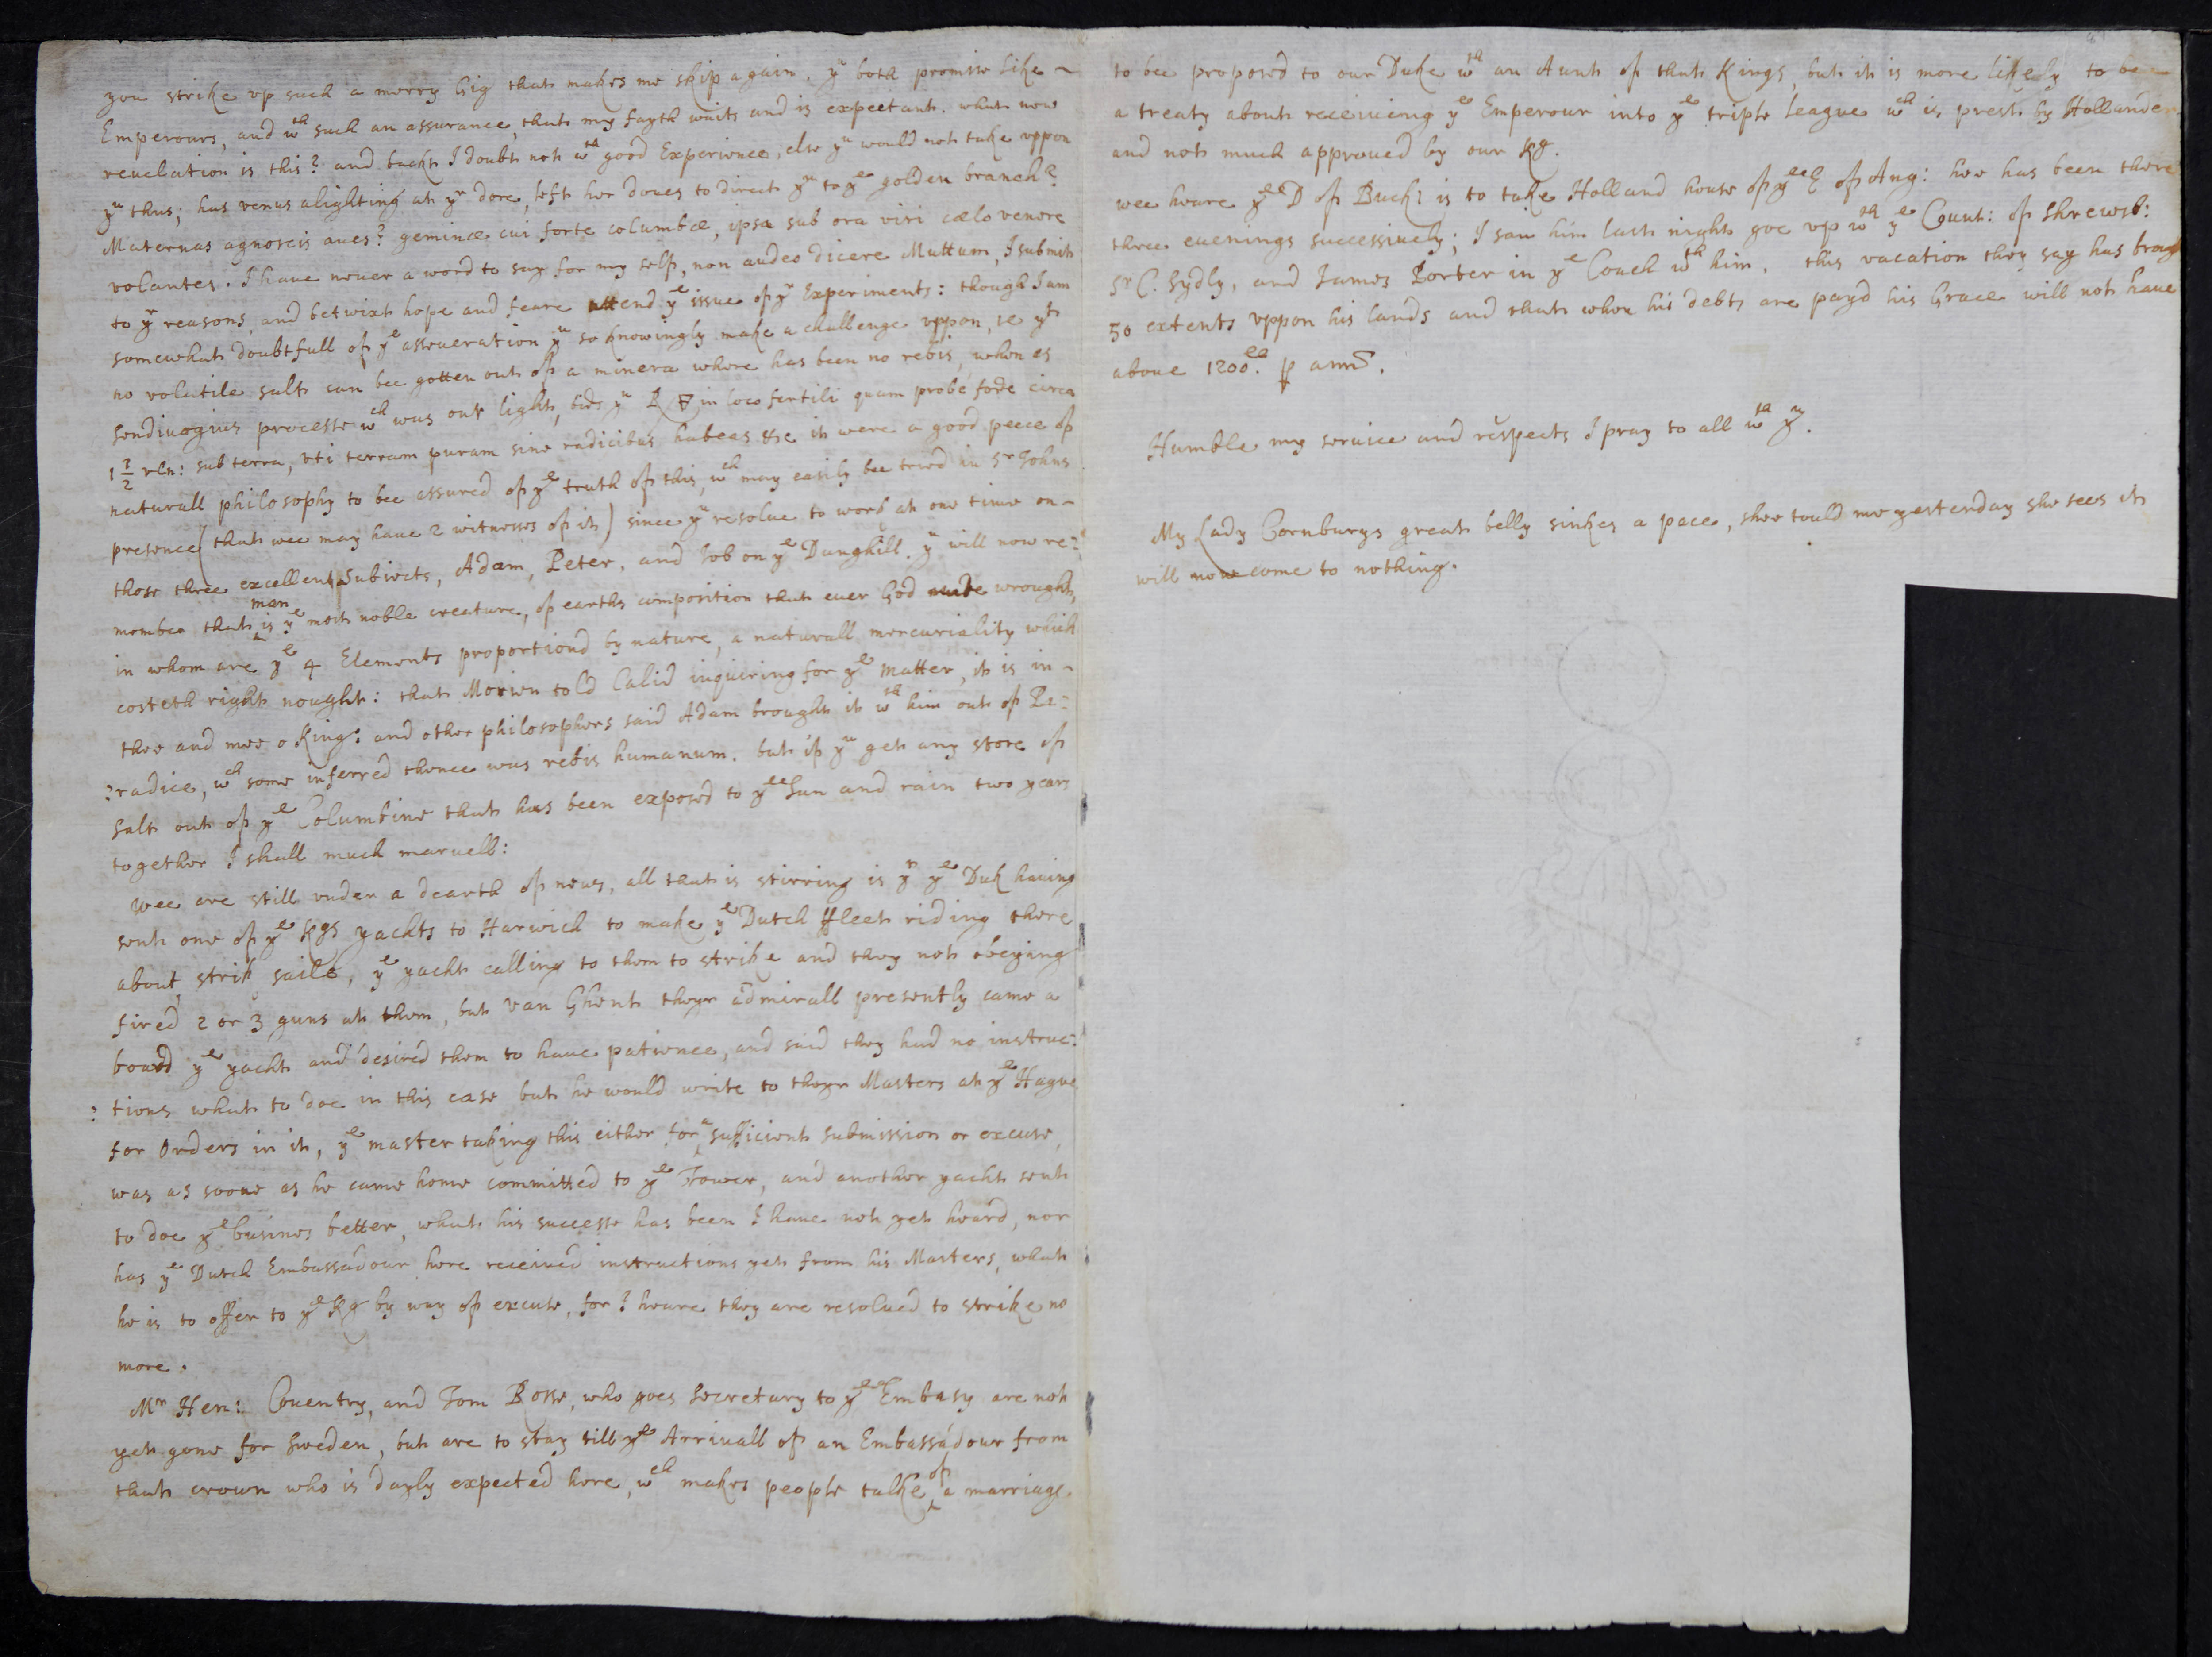 you strike vp such a merry Gig that makes me skip again. yu both promise like
Emperours, and wch such an assurance, that my fayth waits and is expectant. what new
reuelation is this? and backt I doubt not wth good Experience; else yu would not take vppon
yu thus; has venus alighting at yr dore, left her doues to direct yu to ye golden branch?
Maternas agnoscis aues? geminæ cui forte columbæ, ipsa sub ora viri cælo venere
volantes. I haue neuer a word to say for my self, non audeo dicere Muttum, I submit
to yr reasons, and betwixt hope and feare attend ye issue of yr Experiments: though I am
somewhat doubtfull of ye asseueration yu so knowingly make a challenge vppon, ie yt
no volatile salt can bee gotten out of a minera where has been no rebis, when as
Sendiuogius processe wch was our light, bids yu R in loco fertili quam probe fode circa
1 1/2 vln: sub terra, vti terram puram sine radicibus habeas &c it were a good peece of
naturall philosophy to bee assured of ye truth of this, wch may easily bee tried in Sr Johns
presence (that wee may haue 2 witnesses of it) since yu resolue to work at one time on
those three excellent Subiects, Adam, Peter, and Job on ye Dunghill. yu will now re=
member that man is ye most noble creature, of earths composition that euer God wrought,
in whom are ye 4 Elements proportiond by nature, a naturall mercuriality which
costeth right nought: that Morien told Calid inquiring for ye matter, it is in
thee and mee o King: and other philosophers said Adam brought it wth him out of Pa=
=radice, wch some inferred thence was rebis humanum. but if yu get any store of
Salt out of ye Columbine that has been exposed to ye Sun and rain two years
together I shall much maruell:
wee are still vnder a dearth of news, all that is stirring is yt ye Duk hauing
sent one of ye Kgs yachts to Harwich to make ye Dutch ffleet riding there
about, strik saile, ye yacht calling to them to strike and they not obeying
fired 2 or 3 guns at them, but van Ghent theyr admirall presently came a
board ye yacht and desired them to haue patience, and said they had no instruc=
=tions what to doe in this case but he would write to theyr Masters at ye Hague
for Orders in it, ye master taking this either for a sufficient submission or excuse,
was as soone as he came home committed to ye Tower, and another yacht sent
to doe ye busines better, what his successe has been I haue not yet heard, nor
has ye Dutch Embassadour here receiued instructions yet from his Masters, what
he is to offer to ye Kg by way of excuse, for I heare they are resolued to strike no
more.
Mr Hen: Couentry, and Tom Rosse, who goes Secretary to ye Embasy are not
yet gone for Sweden, but are to stay till ye Arriuall of an Embassadour from
that crown who is dayly expected here, wch makes people talke of a marriage.
to bee proposed to our Duke wth an Aunt of that Kings, but it is more likely to be
a treaty about receiueing ye Emperour into ye triple league wch is prest by Hollander
and not much approued by our Kg.
wee heare ye D of Buck: is to take Holland house of ye E of Ang: hee has been there
three euenings successiuely; I saw him last night goe vp wth ye Count: of Shrewsb:
Sr C. Sydly, and James Porter in ye Coach wth him. this vacation they say has brough
50 extents vppon his lands and that when his debts are payd his Grace will not haue
aboue 1200li. p ann.
Humble my seruice and respects I pray to all wth yu.
My Lady Cornburys great belly sinkes a pace, shee tould me yesterday she sees it
will now come to nothing.